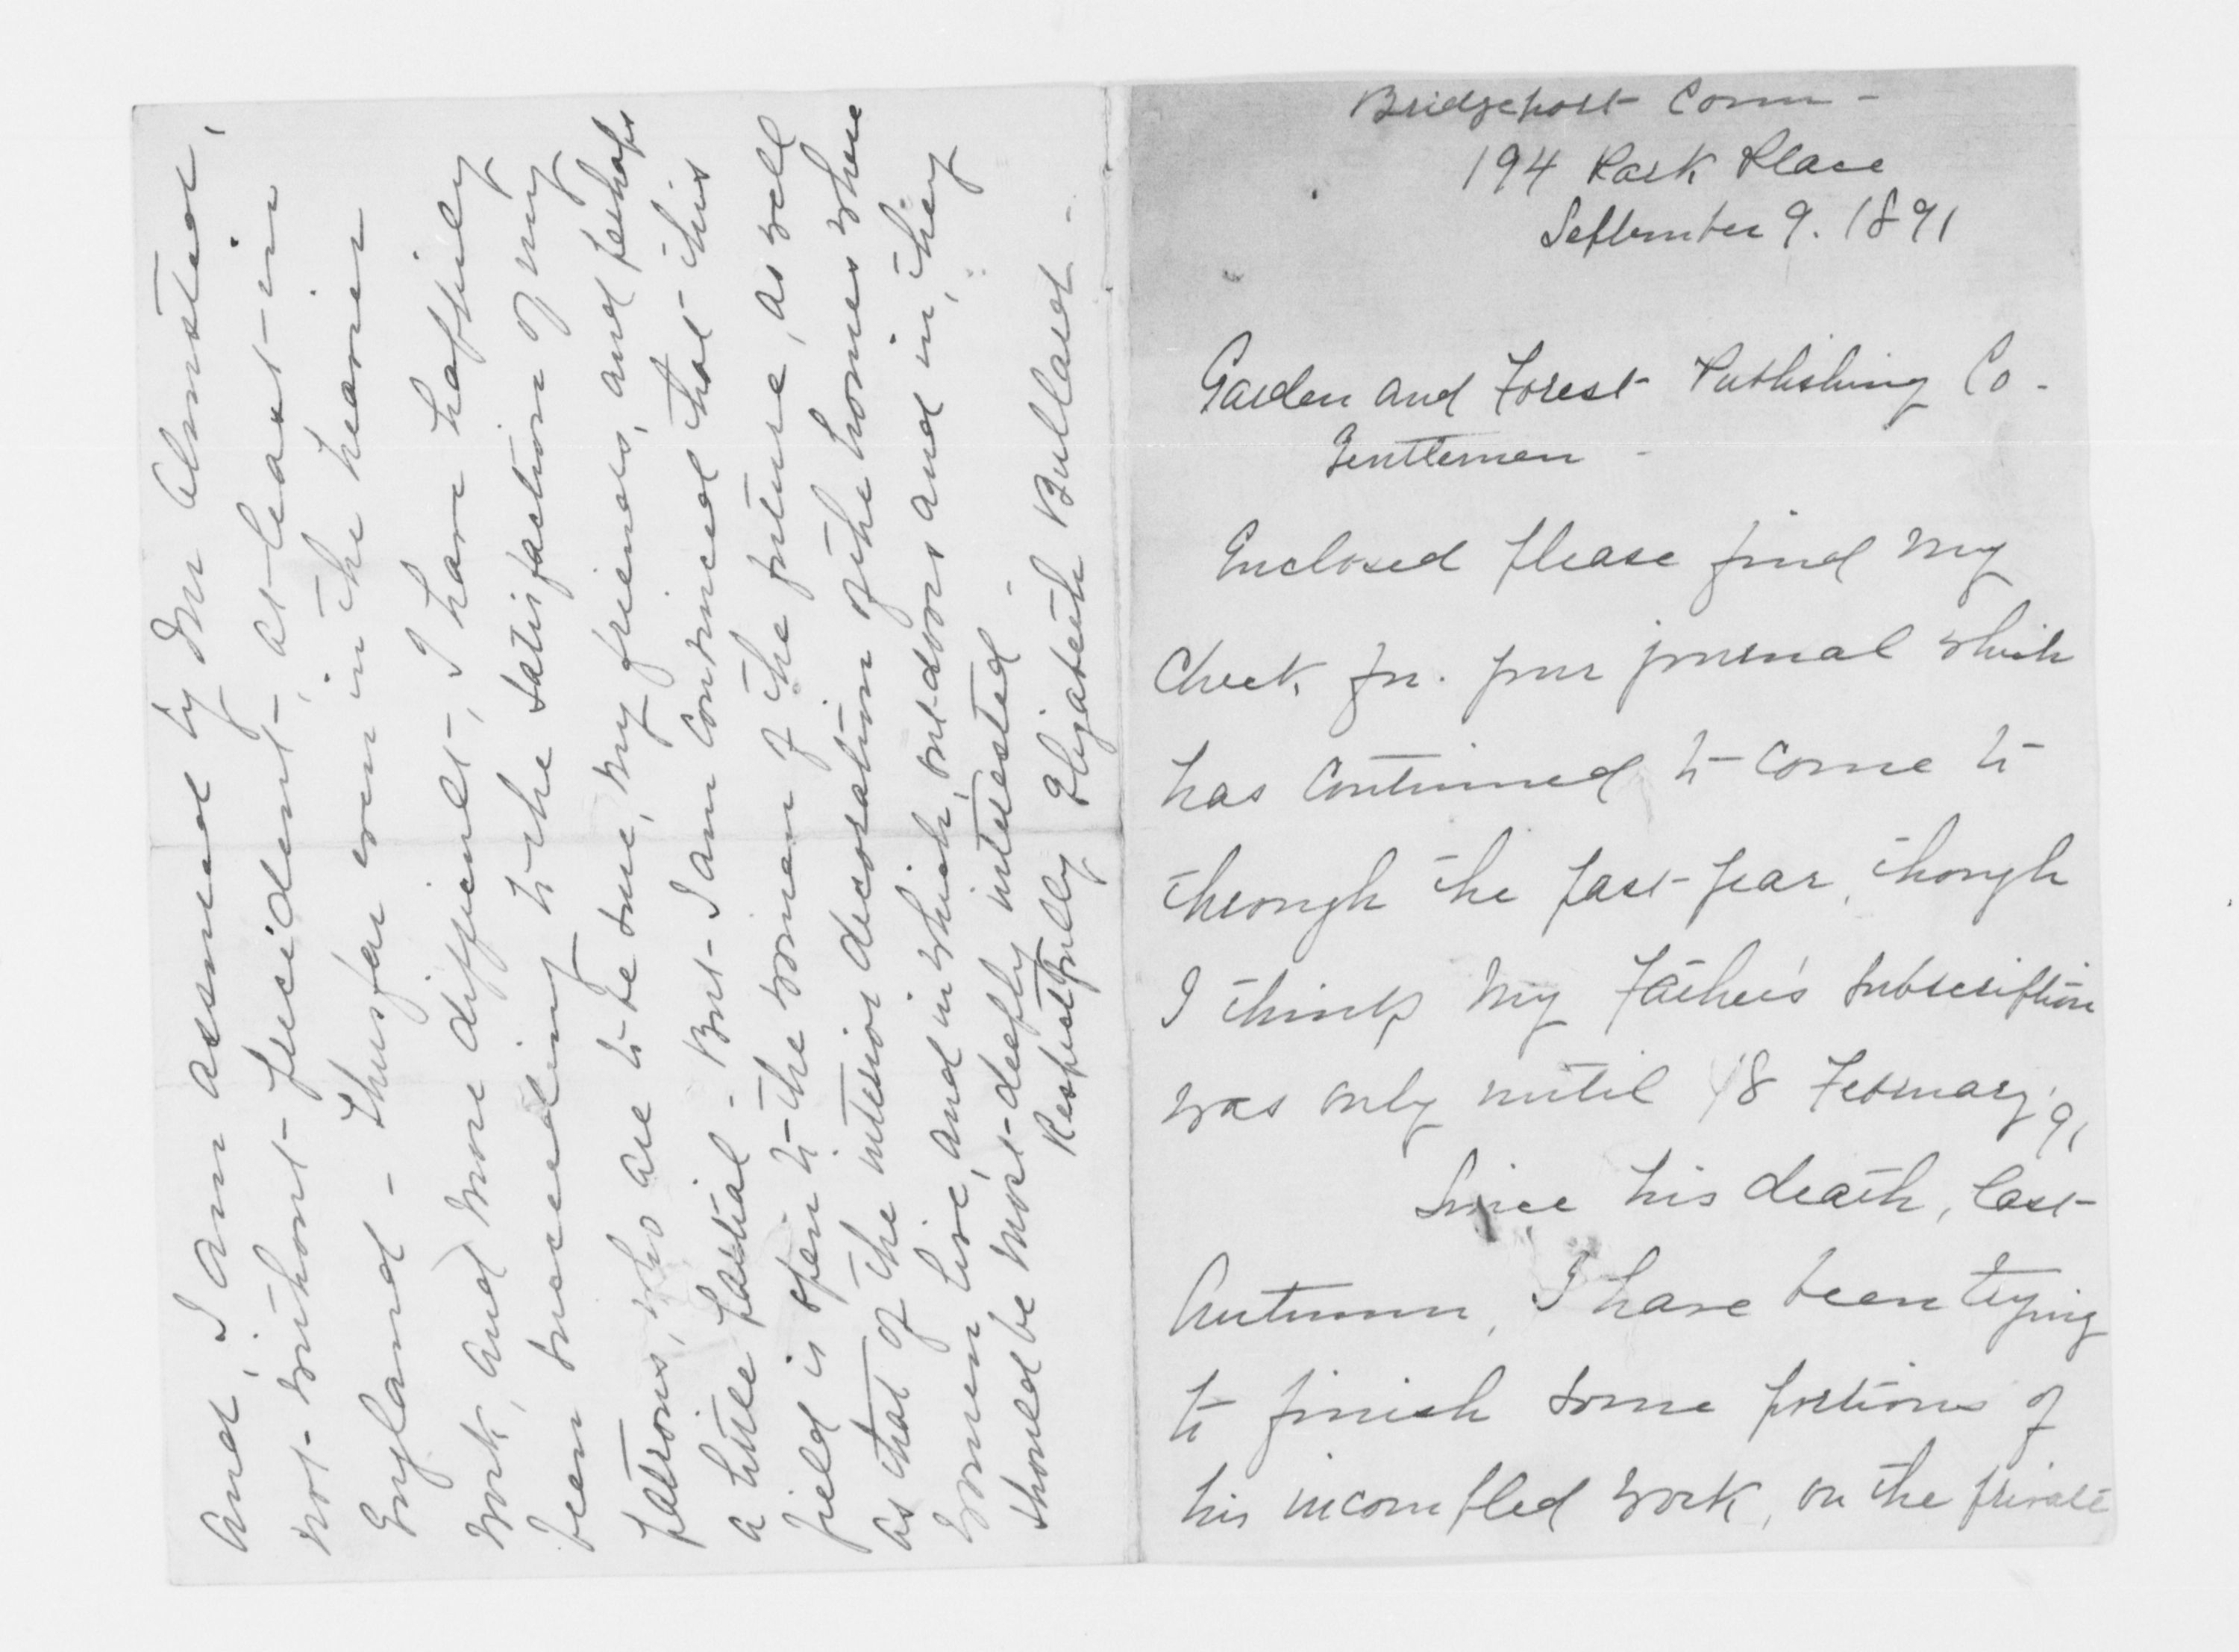 Bridgeport Conn -
194 Park Place
September 9. 1891
Garden and Forest Publishing Co -
Gentlemen -
Enclosed please find my
check for your journal which
has continued to come to
through the past year, though
I think my Father's subscription
was only until 18 February '91
Since his death, last
Autumn, I have been trying
to finish some portions of
his incompled work, on the private
And, I am assured by Mr Olmsted,
not without precident, at least in
England - Thus far even in the heavier
work, and more difficult, I have happily
been succeeding to the satisfaction of my
patrons, who are to be sure, my friends, and perhaps
a little partial - But I am convinced that this
field is open to the women of the future, as well
as that of the interior decoration of the homes where
women live, and in which, out-doors and in, they
should be most deeply interested -
Respectfully Elizabeth Bullard -